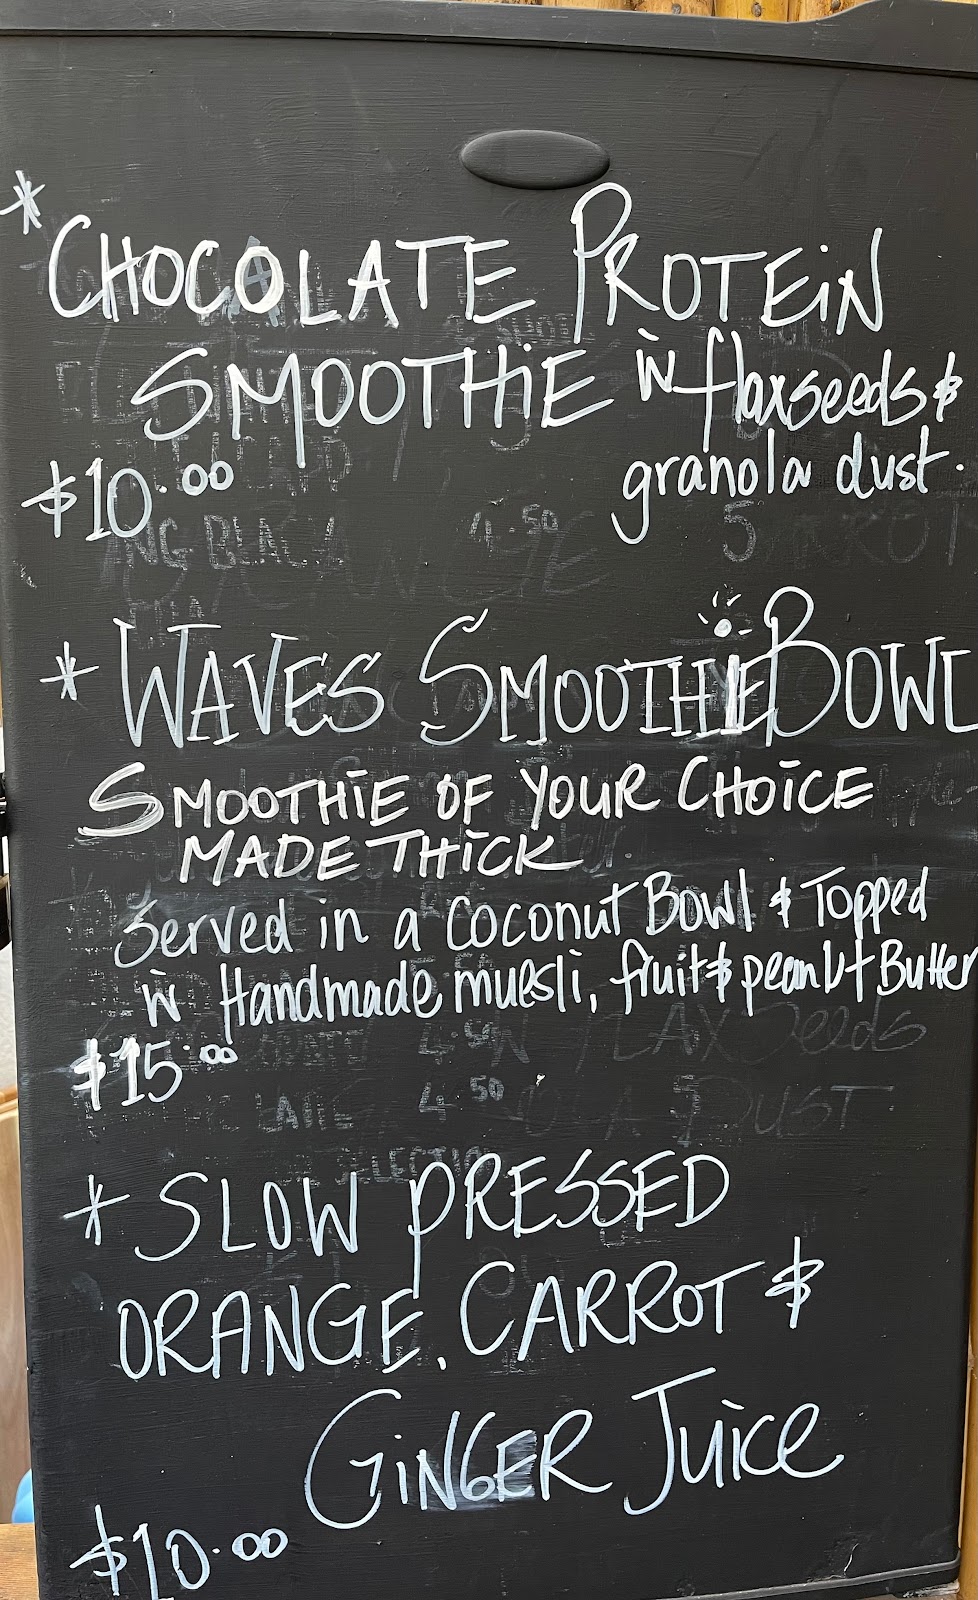 * CHOCOLATE PROTEIN
SMOOTHIE W flaxseeds &
$10.00 granola dust.
* WAVES SMOOTHIE BOWL
SMOOTHIE OF YOUR CHOICE
MADE THICK
Served in a coconut Bowl & Topped
W Handmade muesli, fruit & peanut Butter
$15.00
* SLOW PRESSED
ORANGE, CARROT &
GINGER JUICE
$10.00